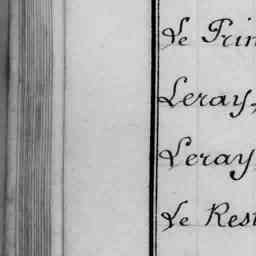 Le Prin
Leray,
Leray,
Le Rest